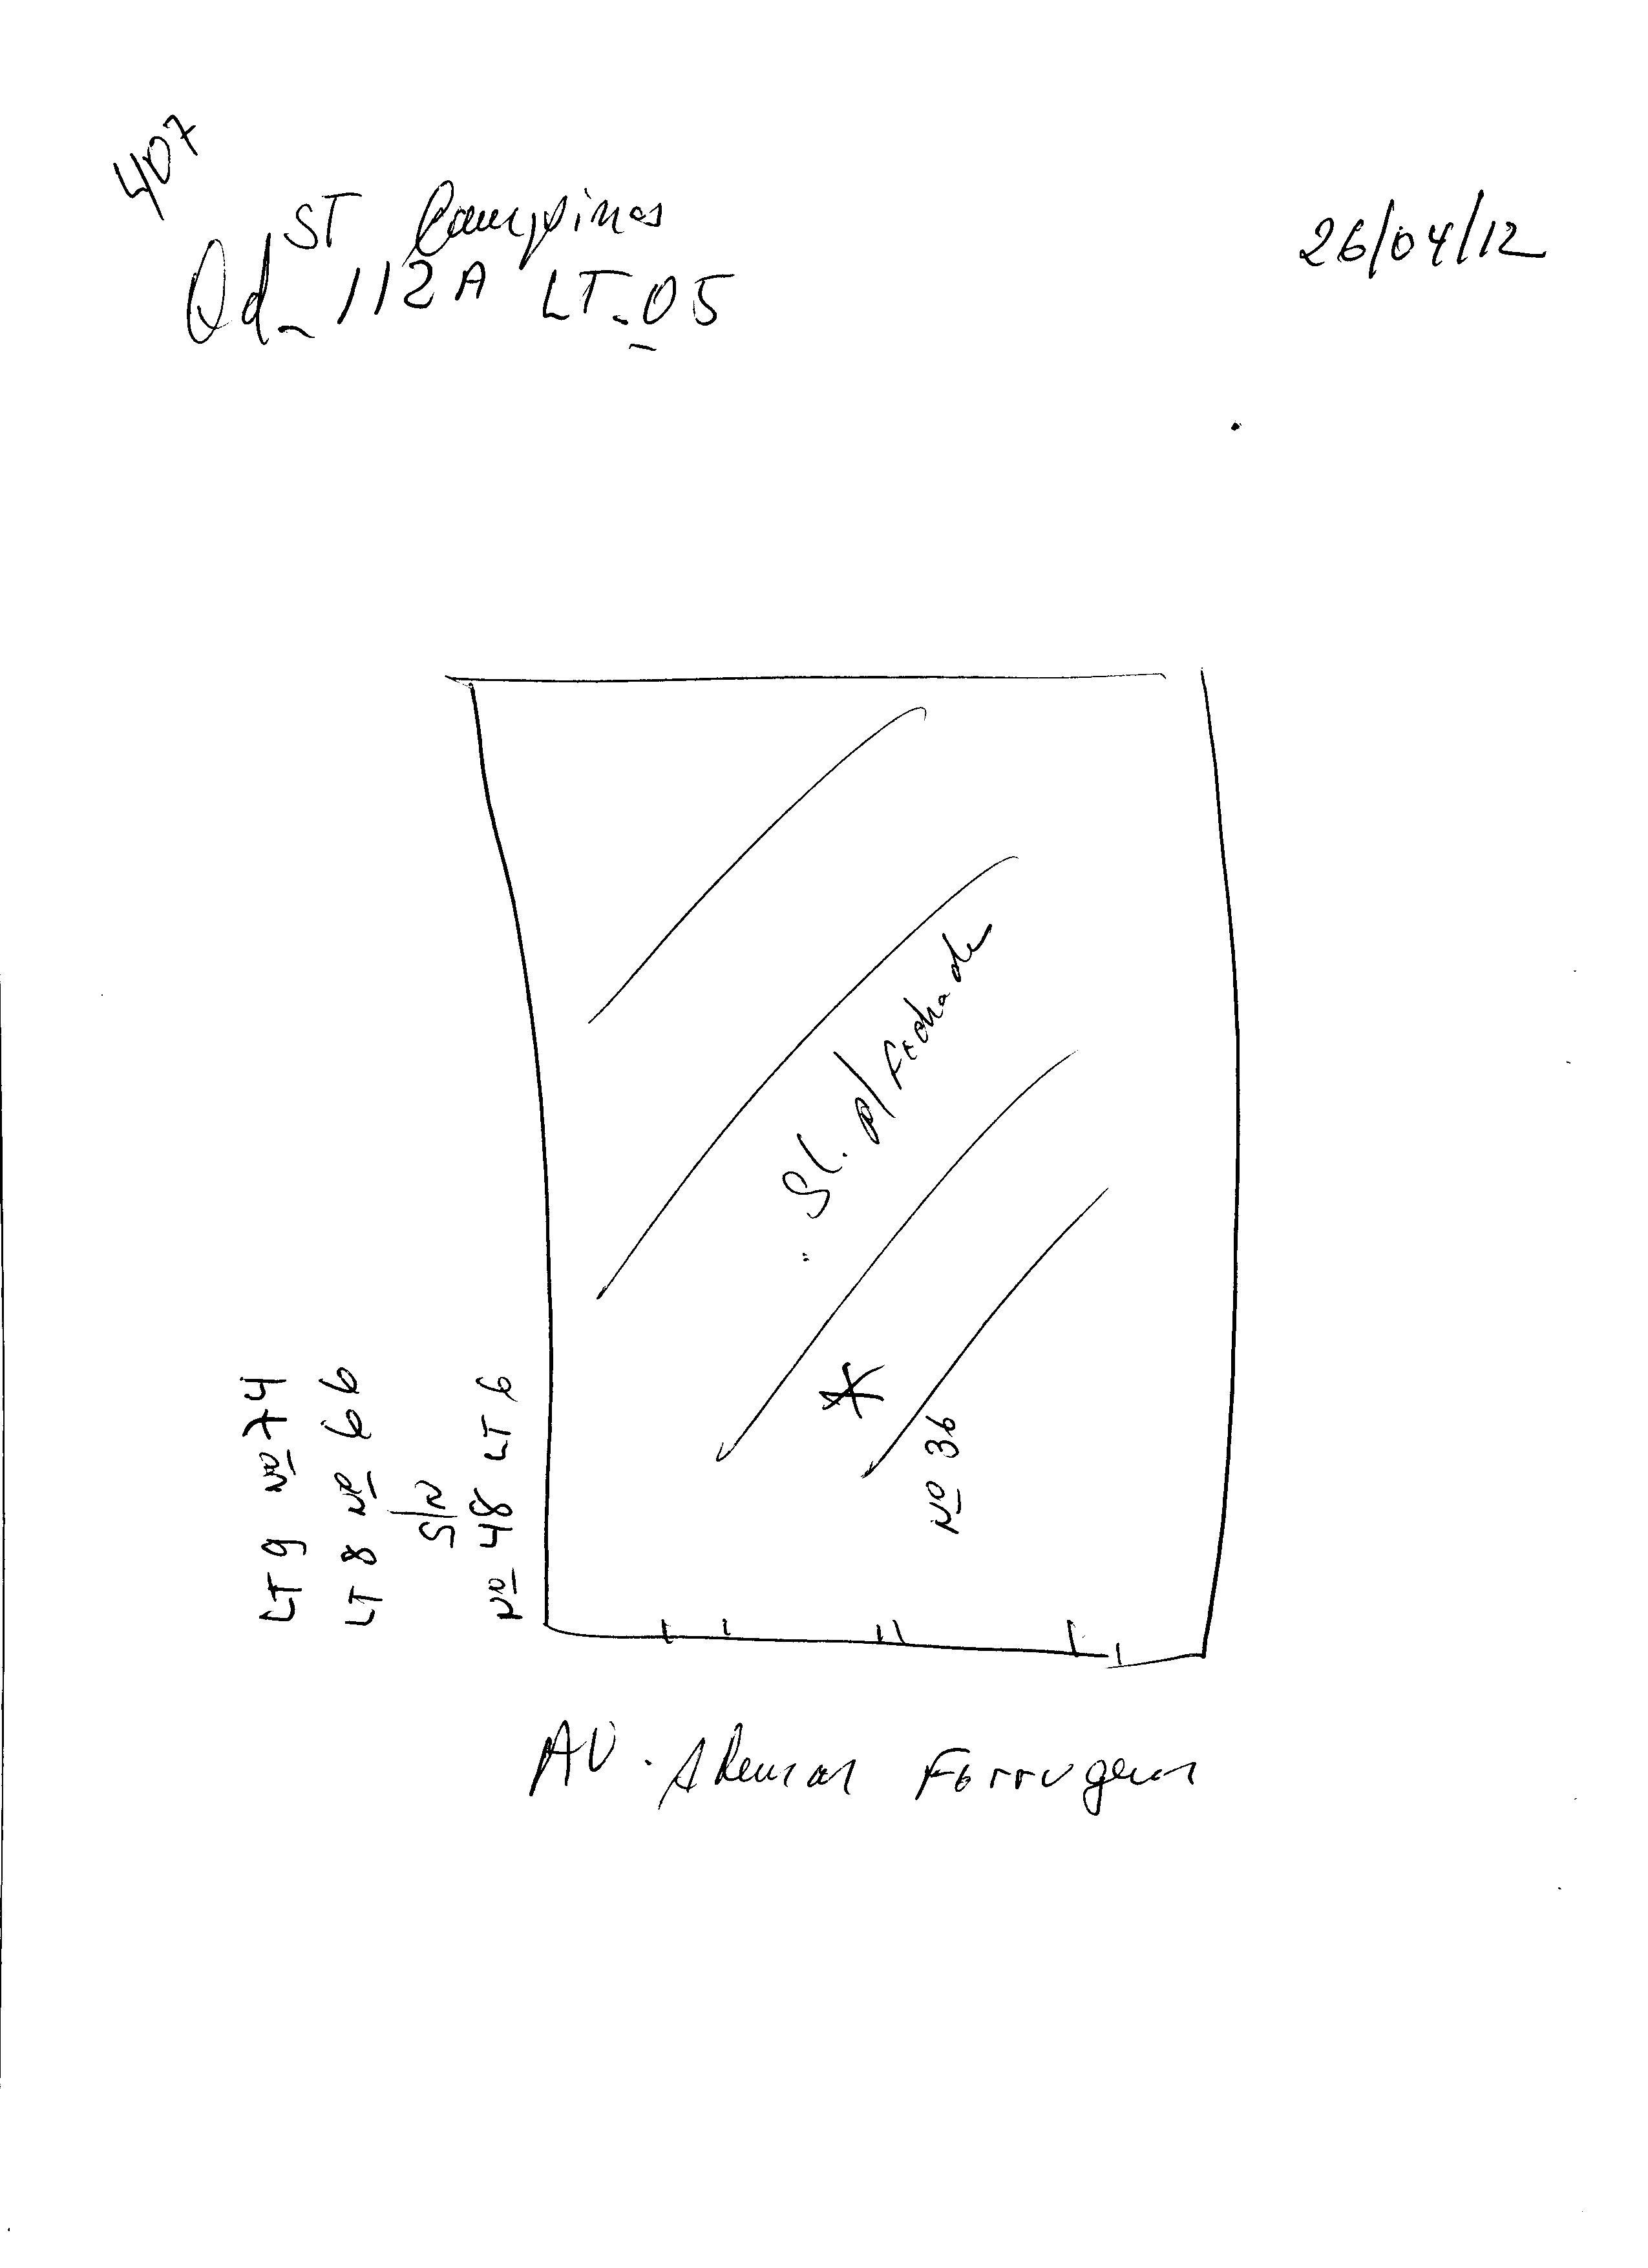 407
ST Campinas
26/04/12
Qd_ 112A LT-05
Sl. p/ Fechada
Nº 36
LT 9 Nº 74
LT 8 Nº 66
S/N
Nº 48 LT 6
AV. Ademar Ferrugem